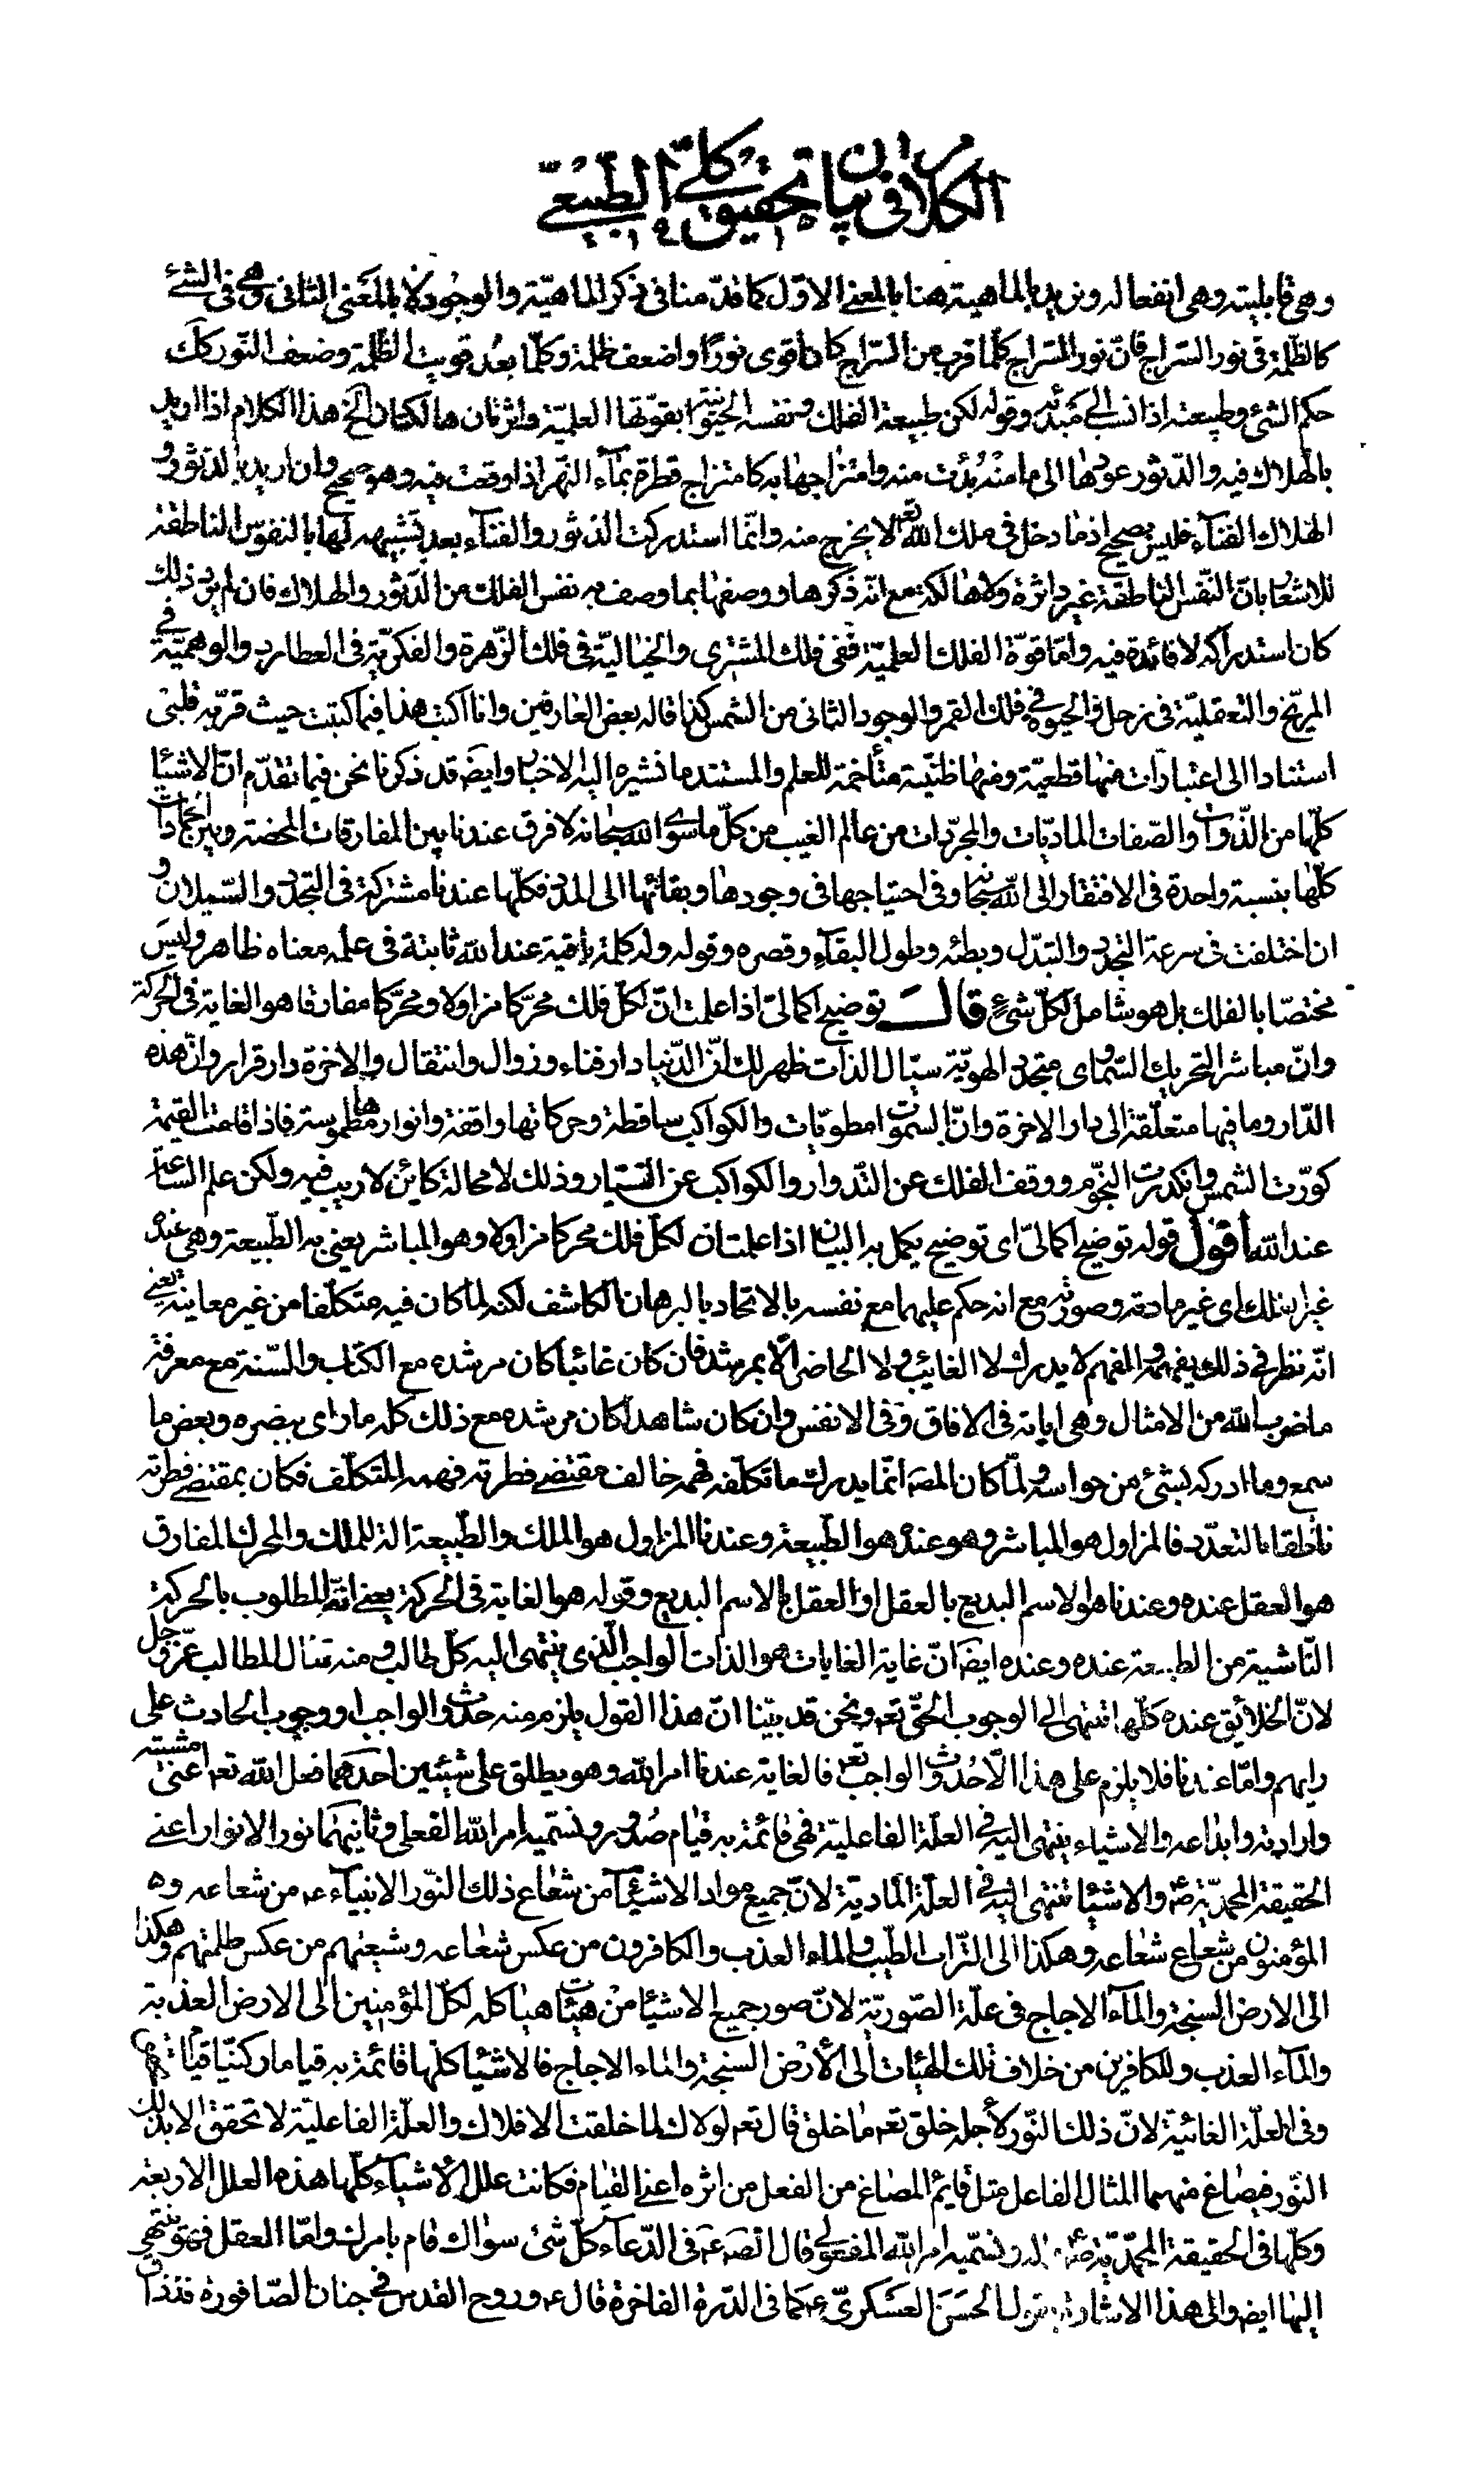 الكلام في بيان تحقيق كلي الطبيعي
وهي قابليته وهي انفعاله ونريد بالماهية هنا بالمعنى الاول كما قدمنا في ذكر الماهيّة والوجود لا بالمعنى الثاني هي في الشئ
كالظّلمة في نور السّراج فانّ نور السّراج كلّما قرب من السّراج كان اقوى نورًا واضعف ظلمة وكلّما بعُد قويت الظّلمة وضعف النّور كك
حكم الشئ وطبيعته اذا نسب الى مَبْدئه وقوله لكن طبيعة الفلك ونفسه الحيوانيّة بقوّتها العلميّة داثرتان هالكتان الخ هذا الكلام اذا اريد
بالهلاك فيه والدّثور عودها الى ما منْه بُدئت منه وامتزاجها به كامتزاج قطرة بمآء النّهر اذا وقعت فيه وهو صحيح وان اريد بالدثور و
الهلاك الفنآء فليس بصحيح اذ ما دخل في ملك الله تع لا يخرج منه وانّما استدركت الدثور والفنآء بعد تشبيهه لها بالنفوس الناطقة
للاشعار بانّ النّفس الناطقة غير داثرة ولا هالكة مع انّه ذكرها ووصفها بما وصف به نفس الفلك من الدّثور والهلاك فان لم يرد ذلك
كان استدراكه لا فائدة فيه وامّا قوّة الفلك العلميّة ففي فلك المشترى والخياليّة في فلك الزّهرة والفكريّة في العطارد والوهميّة في
المرّيخ والتعقليّة في زحل والحيوة في فلك القمر والوجود الثاني من الشمس كذا قاله بعض العارفين وانا اكتب هذا فيما كتبت حيث قرّبه قلبى
استنادا الى اعتبارات منها قطعيّة ومنها ظنّيّة متأخمة للعلم والمستند ما تشير اليه الاخبار وايضَ قد ذكرنا نحن فيما تقدّم انّ الاشيا
كلّها من الذّوات والصّفات الماديّات والمجرّدات من عالم الغيب من كلّ ما سوى الله سبحانه لا فرق عندنا بين المفارقات المحضة وبين الجمادات
كلّها بنسبة واحدة في الافتقار الى الله سبحانه وفى احتياجها في وجودها وبقائها الى المدد فكلّها عندنا مشتركة في التجدد والسّيلان و
ان اختلفت في سرعة التجدد والتبدّل وبطئه وطول البقآء وقصره وقوله وله كلمة باقية عند الله ثابتة في علمه معناه ظاهر وليسَ
مختصّا بالفلك بل هو شامل لكلّ شئٍ قال توضيح اكمالىّ اذا علمت انّ لكلّ فلك محرّكا مزاولا ومحرّكا مفارقا هو الغاية في الحركة
وانّ مباشر التحريك السّماوى متجدد الهويّة سيّال الذات ظهر لك انّ الدّنيا دار فناء وزوال وانتقال والاخرة دار قرار وانّ هذه
الدّار وما فيها متعلّقة الى دار الاخرة وانّ السموات مطويّات والكواكب ساقطة وحركاتها واقفة وانوارها مطموسة فاذا قامت القيمة
كوّرت الشمس وانكدرت النجوم ووقف الفلك عن التّدوار والكواكب عن التسيار وذلك لا محالة كائن لا ريب فيه ولكن علم الساعة
عند الله اقول قوله توضيح اكمالىّ اى توضيح يكمل به البيان اذا علمت ان لكلّ فلك محركا مزاولا وهو المباشر يعني به الطّبيعة وهى عنده
غير اينلك اى غير مادته وصورته مع انه حكم عليهما مع نفسه بالاتحاد بالبرهان الكاشف لكنه لما كان فيه متكلّفا من غير معاينة يعنى
انّه نظر في ذلك بفهمه والفهم لا يدرك لا الغايب ولا الحاضر الّا بمرشد فان كان غائبا كان مرشده مع الكتاب والسّنة مع معرفة
ما ضرب الله من الامثال وهى اياته في الافاق وَفى الانفس وان كان شاهدا كان مرشده مع ذلك كله ما راى ببصره وبعض ما
سمع وما ادركه بشئ من حواسه ولمّا كان المصَ انّما يدرك ما تكلّفه فهمه خالف مقتضى فطرته فهمه المتكلّف فكان بمقتضى فطرته
ناطقا بالتعدّد فالمزاول هو المباشر وهو عندهُ هو الطّبيعة وعندنا المزاول هو الملك والطّبيعة الة للملك والمحرك المفارق
هو العقل عنده وعندنا هو الاسم البديع بالعقل او العقل بالاسم البديع وقوله هو الغاية في الحركة يعنى انّه المطلوب بالحركة
النّاشية من الطبيعة عنده وعنده ايضَ انّ غاية الغايات هو الذات الواجب الذى ينتهى اليه كلّ طالب ومنه تنال المطالب عزّ وجل
لانّ الخلائق عنده كلّها تنتهى الى الوجوب الحقّى تع ونحن قد بيّنا انّ هذا القول يلزم منه حدوث الواجب او وجوب الحادث على
رايهم وامّا عندنا فلا يلزم على هذا الّا حُدوث الواجب تع فالغاية عندنا امر الله وهو يطلق على شيئين احدهما فعل الله تع اعنى مشيته
وارادته وابداعه والاشياء ينتهى اليه في العلّة الفاعليّة فهى قائمة به قيام صُدور ونسميه امر الله الفعلى وثانيهما نور الانوار اعنى
الحقيقة المحمّديّة صؐ والاشيا تنتهى اليه في العلّة الماديّة لانّ جميع مواد الاشيآ من شعاع ذلك النّور الانبيآء عؑ من شعاعه وه
المؤمنون من شعاع شعاعه وهكذا الى التّراب الطّيب والماء العذب والكافرون من عكس شعاعه وشيعتهم من عكس ظلمتهم وهكذا
الى الارض السبخة والمآء الاجاج في علّة الصّوريّة لانّ صور جميع الاشيا من هيئات هياكله لكلّ المؤمنين الى الارض العذبة
والمآء العذب وللكافرين من خلاف تلك الهيئات الى الأرض السبخة والماء الاجاج فالاشيا كلّها قائمة به قياما ركنيّا
وفى العلّة الغائيّة لانّ ذلك النّور لأجله خلق تع ما خلق قال تع لولاك لما خلقت الافلاك والعلّة الفاعليّة لا تحقق الا بذلك
النّور فيصاغ منهما المثال الفاعل مثل قايم المصاغ من الفعل من اثره اعنى القيام فكانت علل الأشيآء كلّها هذه العلل الاربعة
وكلّها في الحقيقة المحمّديّة ونسمّيه امر الله المفعولى قال الصَ عؑ في الدّعآء كلّ شئ سواك قام بامرك وامّا العقل فهو ينتهي
اليها ايضَ والى هذا الاشارة بقول الحسَن العسَكرىّ عؑ كما في الدرّة الفاخرة قال عؑ وروح القدس في جنان الصّاقورة